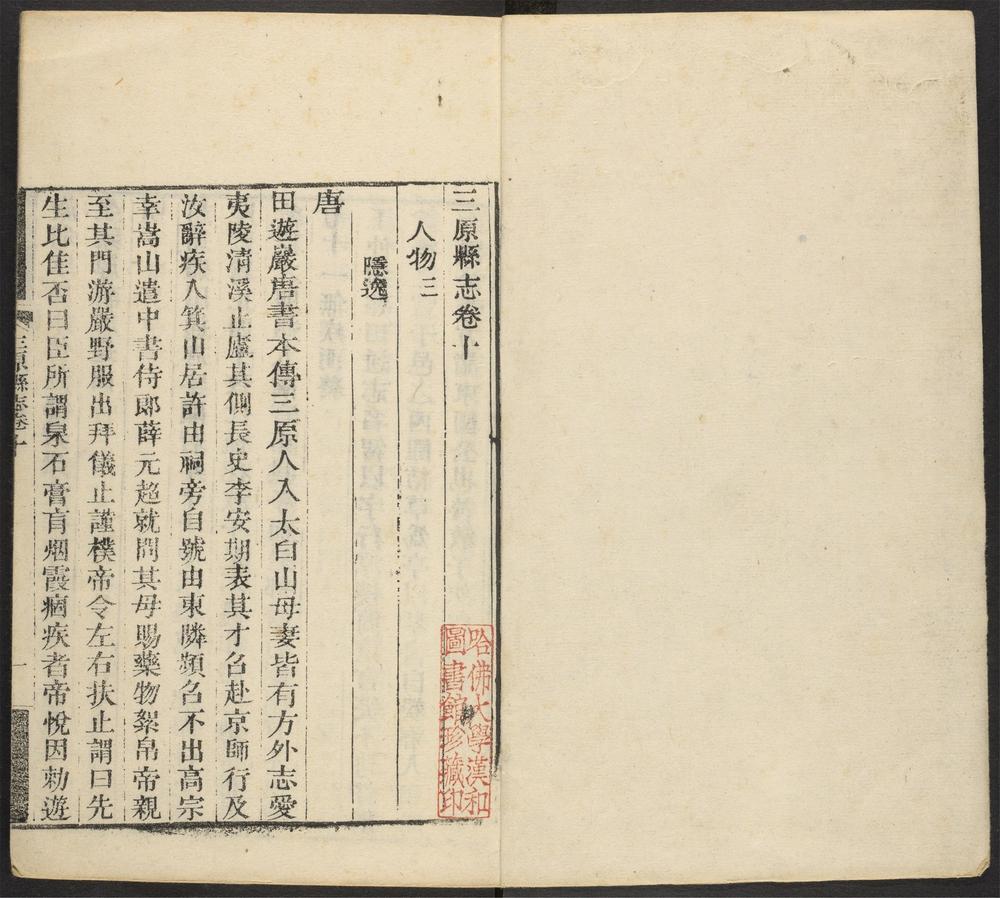 三原縣志卷十
人物三
隱逸
唐
田遊巖唐書本傳三原人入太白山母妻皆有方外志愛
夷陵清溪止廬其側長史李安期表其才召赴京師行及
汝辭疾入箕山居許由祠旁自號由東隣頻召不出高宗
幸嵩山遣中書侍郎薛元超就問其母賜藥物絮帛帝親
至其門游嚴野服出拜儀止謹樸帝令左右扶止謂曰先
生比佳否曰臣所謂泉石膏肓烟霞痼疾者帝悅因勅遊
三原縣志卷十
一
哈佛大學漢和
圖書館珍藏印